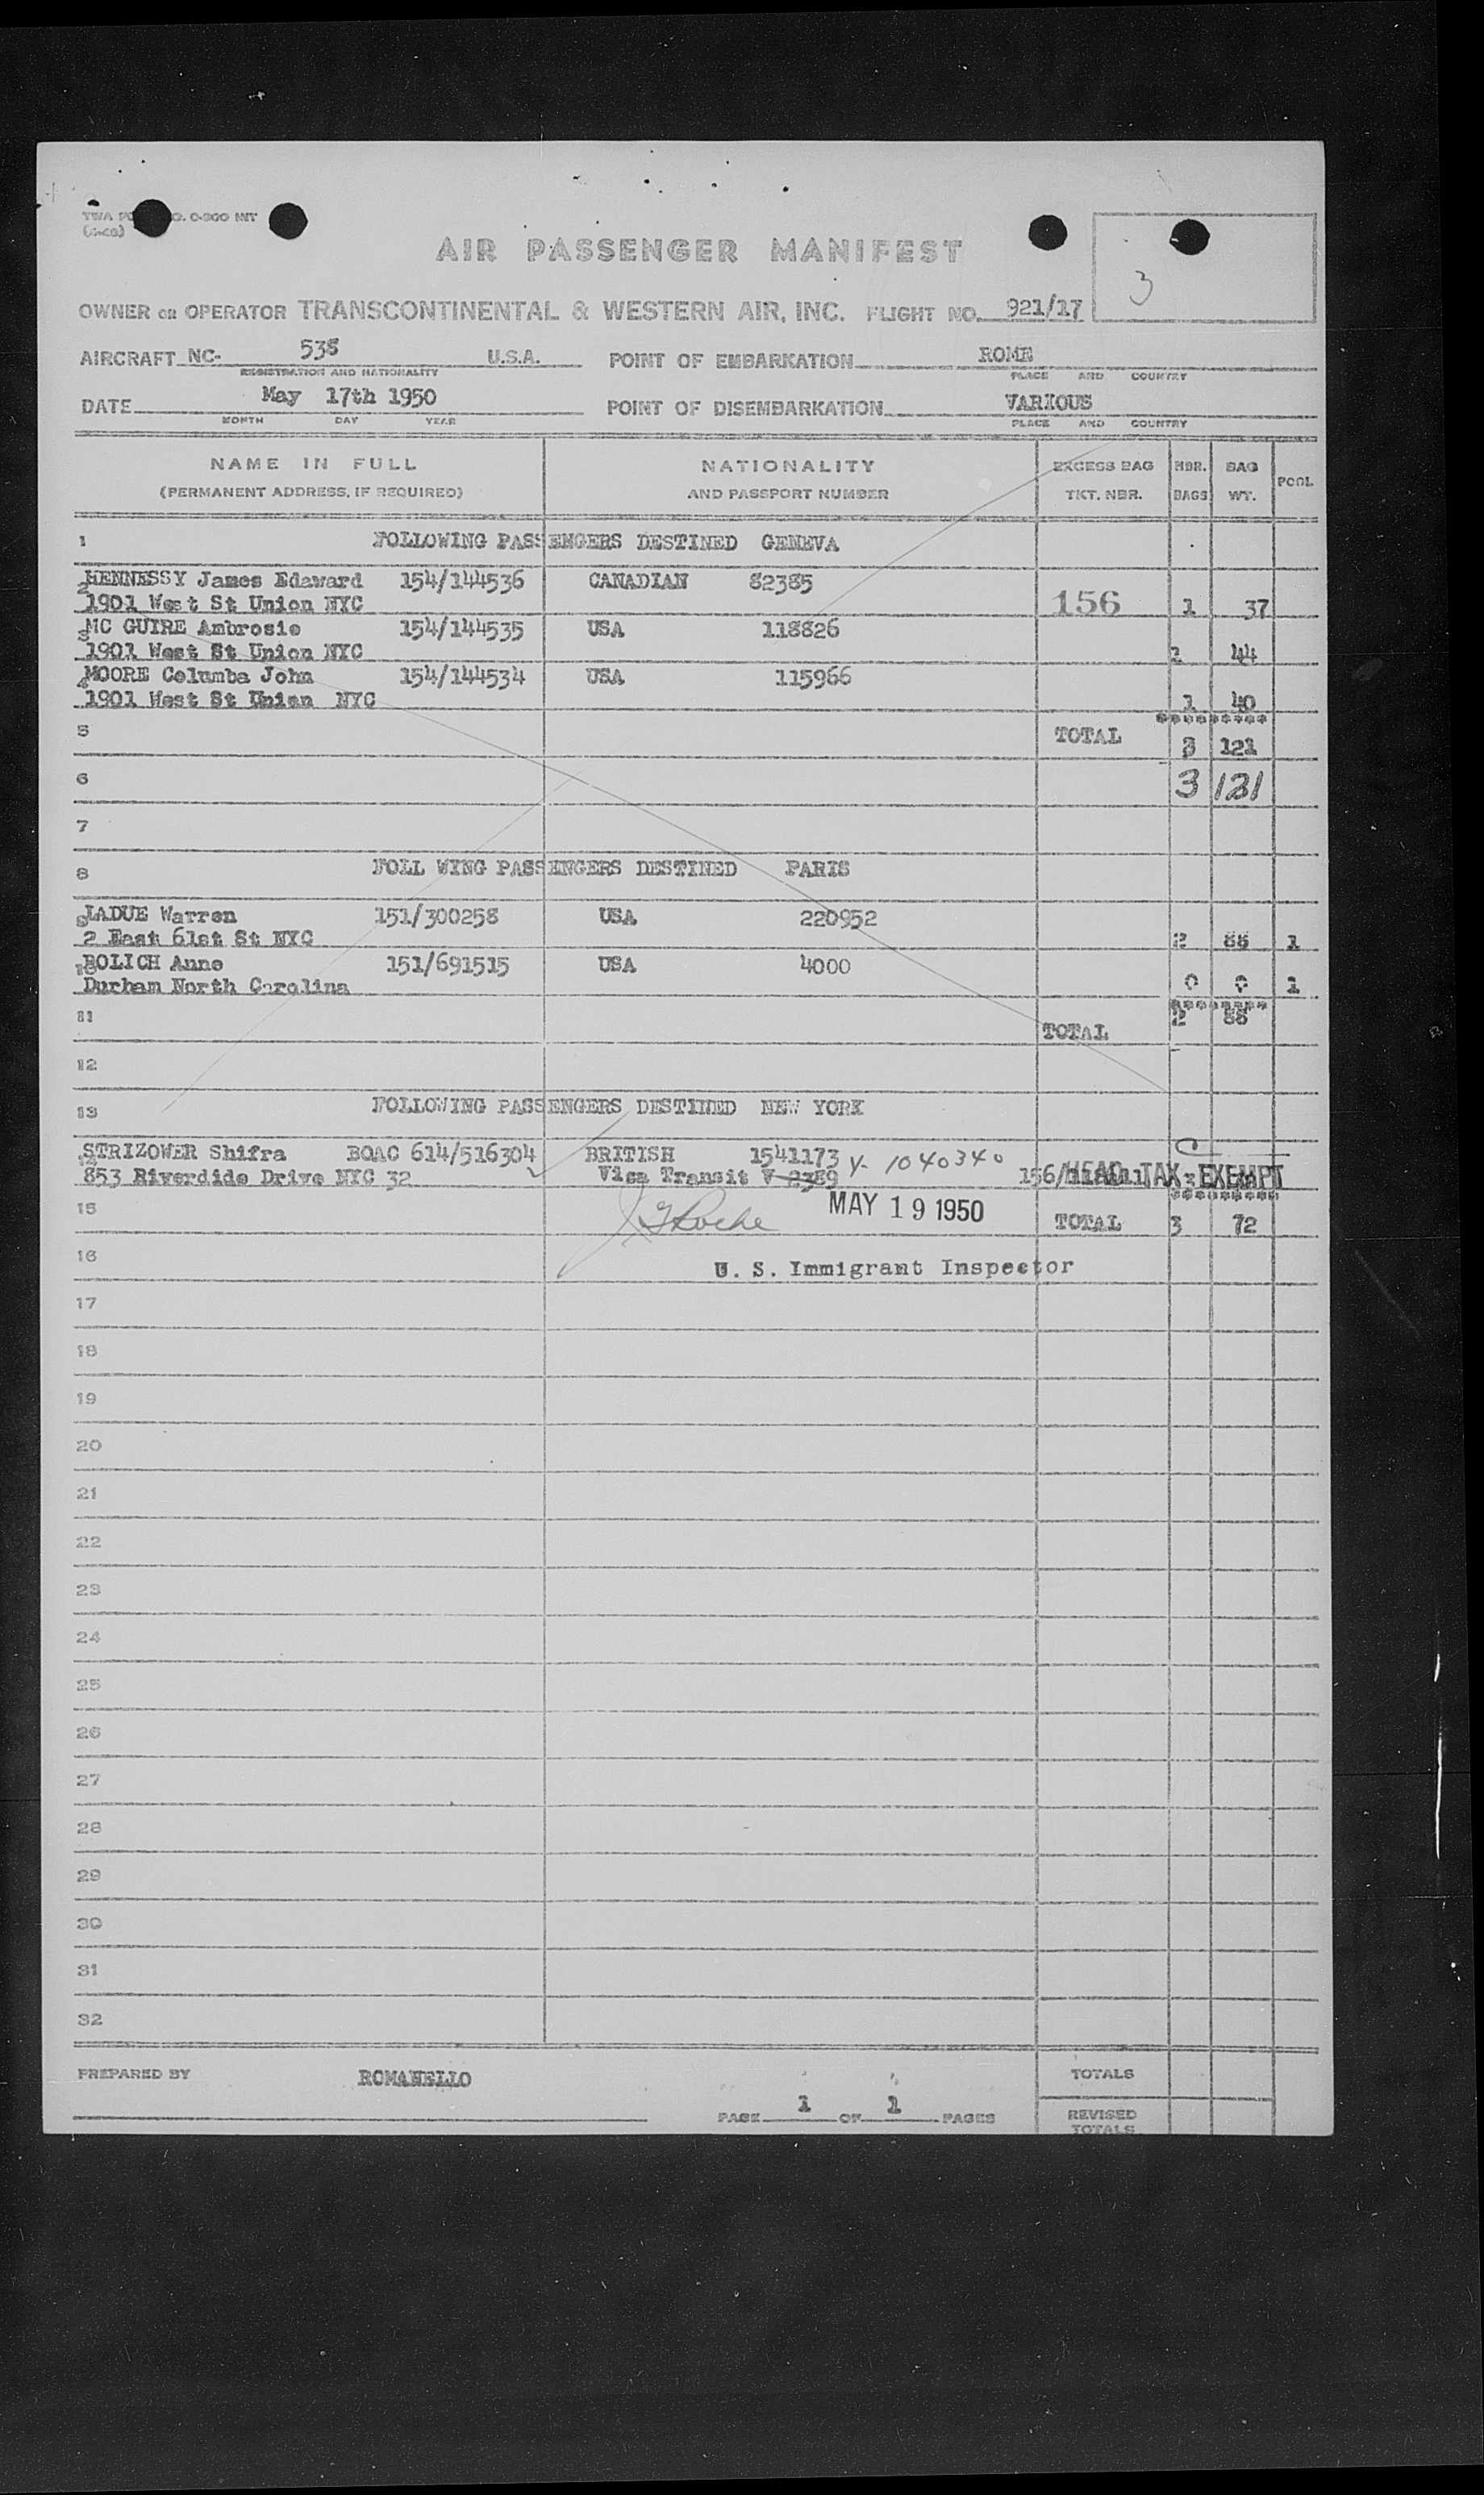 TWA O. 0-300 NIT
AIR PASSENGER MANIFEST
3
OWNER OR OPERATOR TRANSCONTINENTAL & WESTERN AIR, INC. FLIGHT NO. 921/17
AIRCRAFT NC- 538 U.S.A. POINT OF EMBARKATION ROME
REGISTRATION AND NATIONALITY PLACE AND COUNTRY
DATE May 17th 1950 POINT OF DISEMBARKATION VARIOUS
MONTH DAY YEAR PLACE AND COUNTRY
NAME IN FULL NATIONALITY EXCESS BAG NBR. BAG POOL
(PERMANENT ADDRESS, IF REQUIRED) AND PASSPORT NUMBER TKT. NBR. BAGS WT.
1 FOLLOWING PASSENGERS DESTINED GENEVA
2 HENNESSY James Edaward 154/144536 CANADIAN 82385
1901 West St Union NYC 156 1 37
3 MC GUIRE Ambrosie 154/144535 USA 118826
1901 West St Union NYC 1 44
4 MOORE Columba John 154/144534 USA 115966
1901 West St Union NYC 1 40
*********
5 TOTAL 3 121
6 3 121
7
8 FOLL WING PASSENGERS DESTINED PARIS
9 LADUE Warren 151/300258 USA 220952
2 East 61st St NYC 2 88 1
10 BOLICH Anne 151/691515 USA 4000
Durham North Carolina 0 0 1
********
11 TOTAL 2 88
12
13 FOLLOWING PASSENGERS DESTINED NEW YORK
14 STRIZOWER Shifra BOAC 614/516304 BRITISH 1541173 V- 1040340
853 Riverdide Drive NYC 32 Visa Transit V 2389 156/ HEAD TAX EXEMPT
*********
15 J G Roche MAY 19 1950 TOTAL 3 72
16 U. S. Immigrant Inspector
17
18
19
20
21
22
23
24
25
26
27
28
29
30
31
32
PREPARED BY ROMANELLO TOTALS
PAGE 1 OF 1 PAGES REVISED
TOTALS